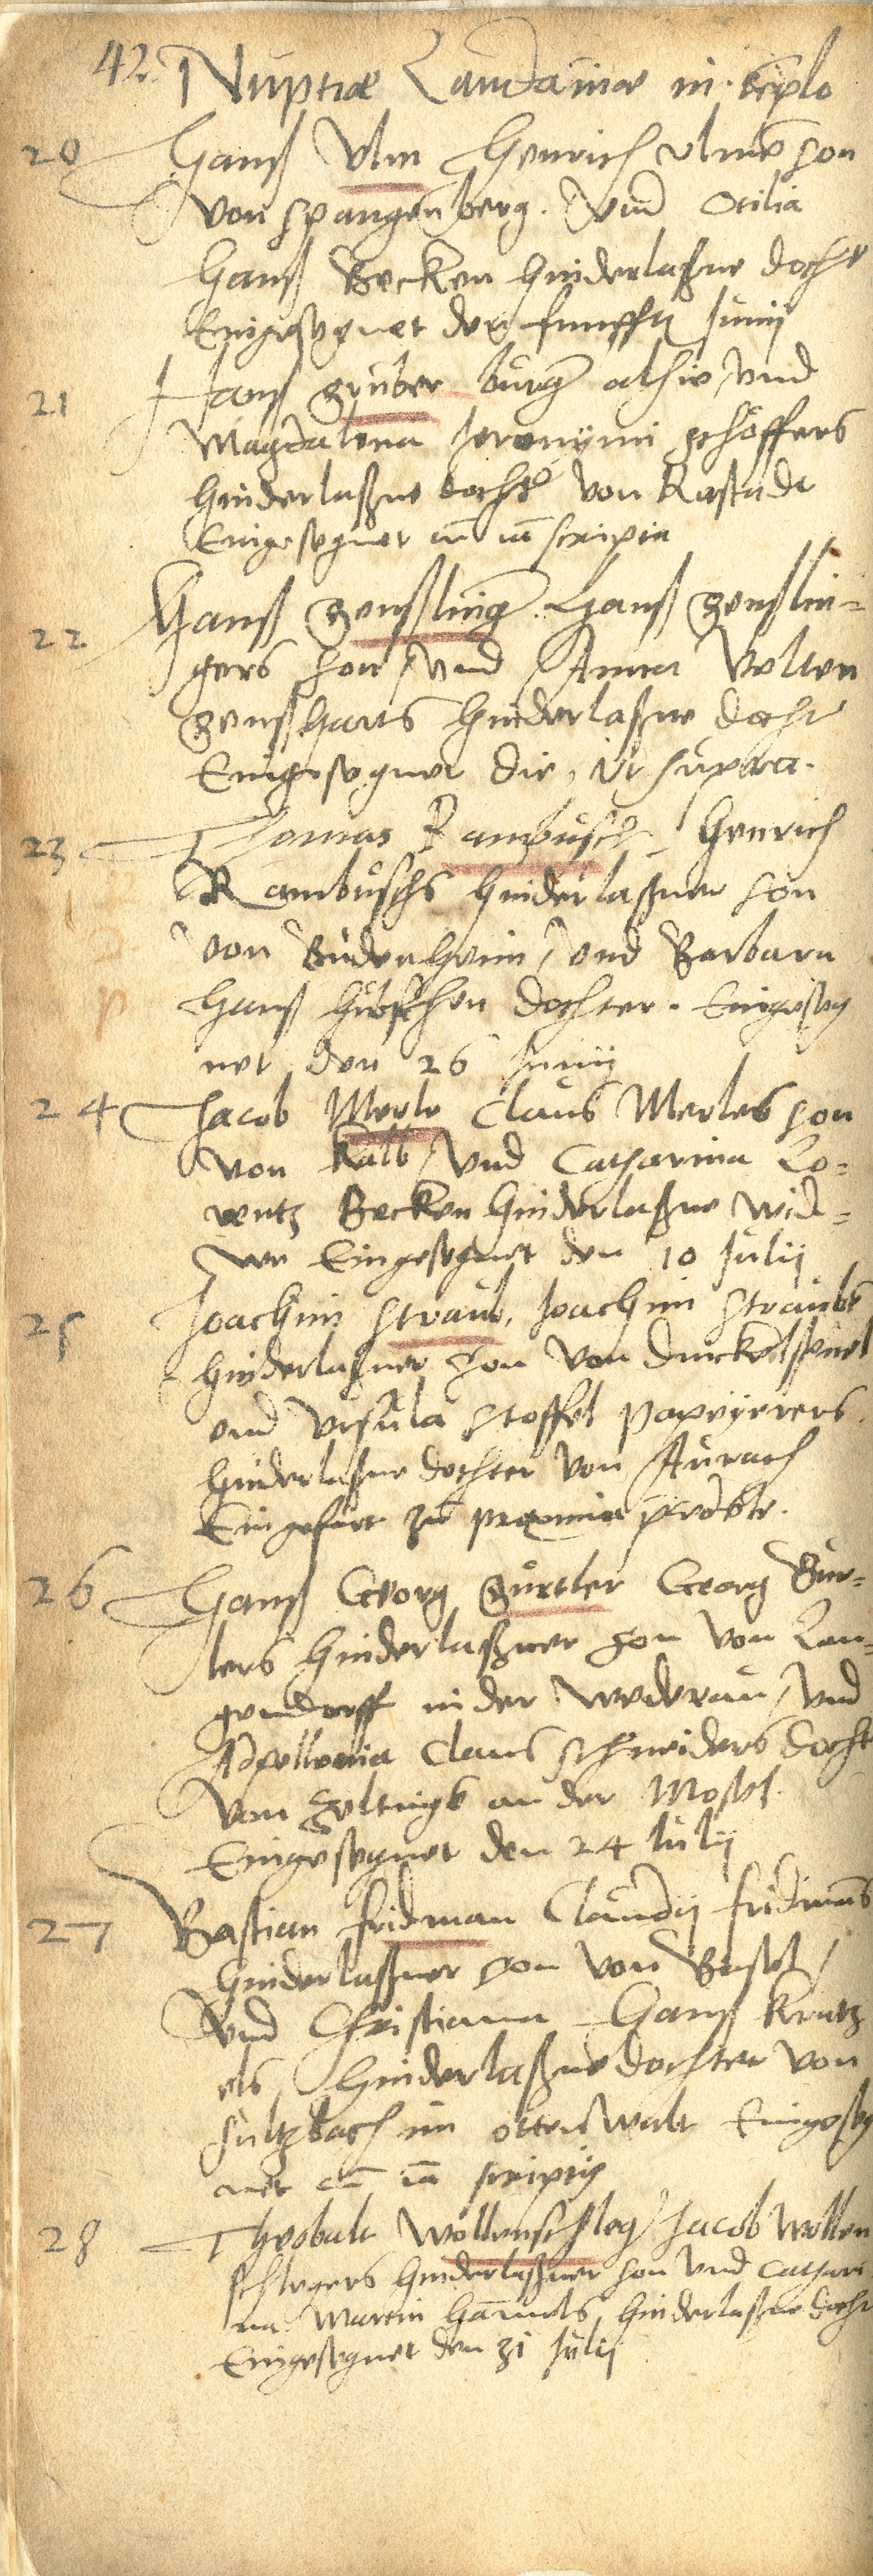 42. Nuptiæ Landauiæ in templo
20 Hanß Ulm Henrich Ulmē son
von Spangenberg. Vnd Otilia
Hanß Becken hinderlaßne docht
Eingesegnet den funfftē Junij
21 Hanß gruber burg alhie, vnd
Magdalena Jeronymi schöffers
hinderlaßne docht von Rastadt
Eingesegnet
22 Hanß genßling. Hanß genßlin=
gers son, vnd Anna Velten
genßharts hinderlaßne docht
Eingesegnet die, vt supra.
23 Thomas Rambusch, Henrich
Rambuschs hinderlaßner son
von Budenheim, vnd Barbara
Hanß Hübschen dochter. Eingeseg
net den 26 Junij
24 Jacob Merle Claus Merles son
von Kalb, vnd Catharina Lo=
rentz Becken hinderlaßne wid=
we Eingesegnet den 10 Julij
25 Joachim Straub, Joachim Straubē
hinderlaßner son von
vnd Vrsula Stoffel papeyerers
hinderlaßne dochter von Aurach
26 Hanß Georg Gurtler Georg Gur=
lers hinderlaßner son von Lan=
gendorff in der Wederau, vnd
Apellonia Claus schneiders docht
von Zeltinge an der Mosel.
Eingesegnet den 24 Julij
27 Bastian fridman Claudij fridmās
hinderlaßner son von Basel,
vnd Christiana Hanß Kretz
els, hinderlaßne dochter von
Sultzbach im ottenwalt Eingeseg
net
28 Theobalt Wollenschleg, Jacob Wollen
schlegers hinderlaßner son vnd Cathari
na Martin Hāmels hinderlaßne docht
Eingesegnet den 31 Julij